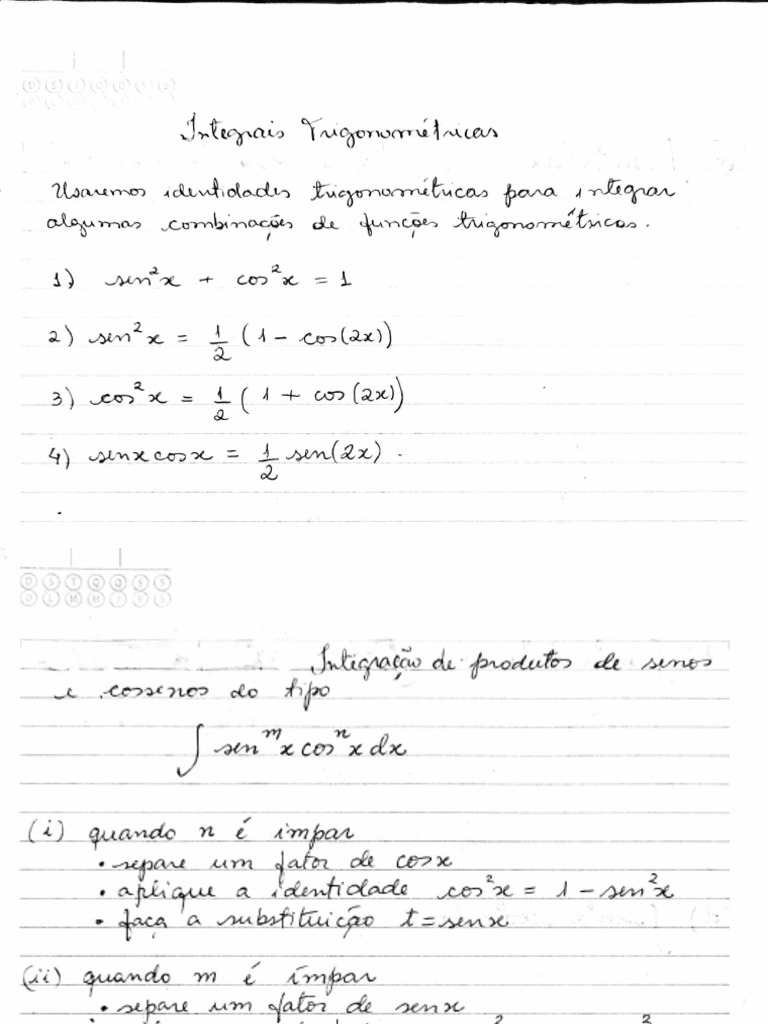 Integrais Trigonométricas
Usaremos identidades trigonométricas para integrar
algumas combinações de funções trigonométricas.
1) sen²x + cos²x = 1
2) sen²x = 1/2 (1 - cos(2x))
3) cos²x = 1/2 (1 + cos(2x))
4) senx cosx = 1/2 sen(2x).
D S T Q Q S S
D L M M J V S
Integração de produtos de senos
e cossenos do tipo
∫ senᵐx cosⁿx dx
(i) quando n é ímpar
• separe um fator de cosx
• aplique a identidade cos²x = 1 - sen²x
• faça a substituição t = senx
(ii) quando m é ímpar
• separe um fator de senx